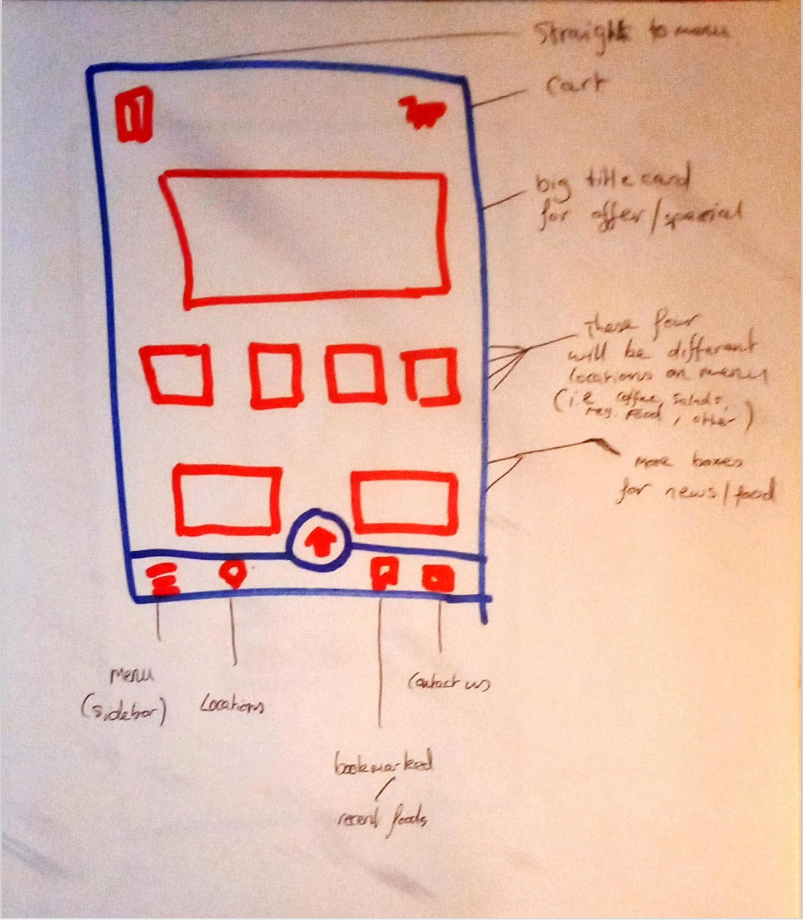 Straight to menu
Cart
big title card
for offer/special
These four
will be different
locations on menu
(i.e coffee, salads,
reg. food, other)
more boxes
for news/food
menu
(sidebar)
Locations
Contact us
bookmarked
/
recent foods